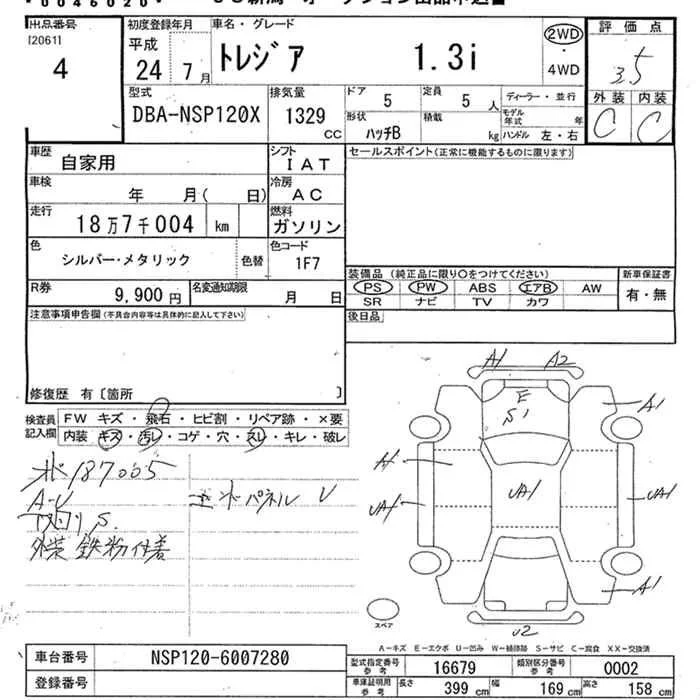 出品番号
[20611
4
初度登録年月
平成
24 年 7 月
車名・グレード
トレジア 1.3i
2WD
・
4WD
評価点
3.5
外装 内装
C C
型式
DBA-NSP120X
排気量
1329 CC
ドア 5
定員 5 人
形状 ハッチB
積載 kg
ディーラー・並行
モデル年式 年
ハンドル 左・右
車歴 自家用
シフト IAT
車検 年 月( 日)
冷房 AC
走行 18万7千004 km
燃料 ガソリン
色 シルバー・メタリック 色替
色コード 1F7
R券 9,900 円
名変通知期限 月 日
セールスポイント(正常に機能するものに限ります)
装備品 (純正品に限り○をつけてください)
PS PW ABS エアB AW
SR ナビ TV カワ
新車保証書
有・無
後日品
注意事項申告欄(不具合内容等は具体的に記入して下さい)
修復歴 有〔箇所 〕
検査員記入欄
FW キズ・飛石・ヒビ割・リペア跡・×要
内装 キズ・汚レ・コゲ・穴・スレ・キレ・破レ
187005
A-U
S.
外装 鉄粉付着
パネル U
A1 A2
E
S1
A1
A1
UA1
UA1
UA1
A1
U2
スペア
A-キズ E-エクボ U-凹み W-補修跡 S-サビ C-腐食 XX-交換済
車台番号 NSP120-6007280
登録番号
型式指定番号 参考 16679
類別区分番号 参考 0002
車庫証明用 参考 長さ 399 cm 幅 169 cm 高さ 158 cm